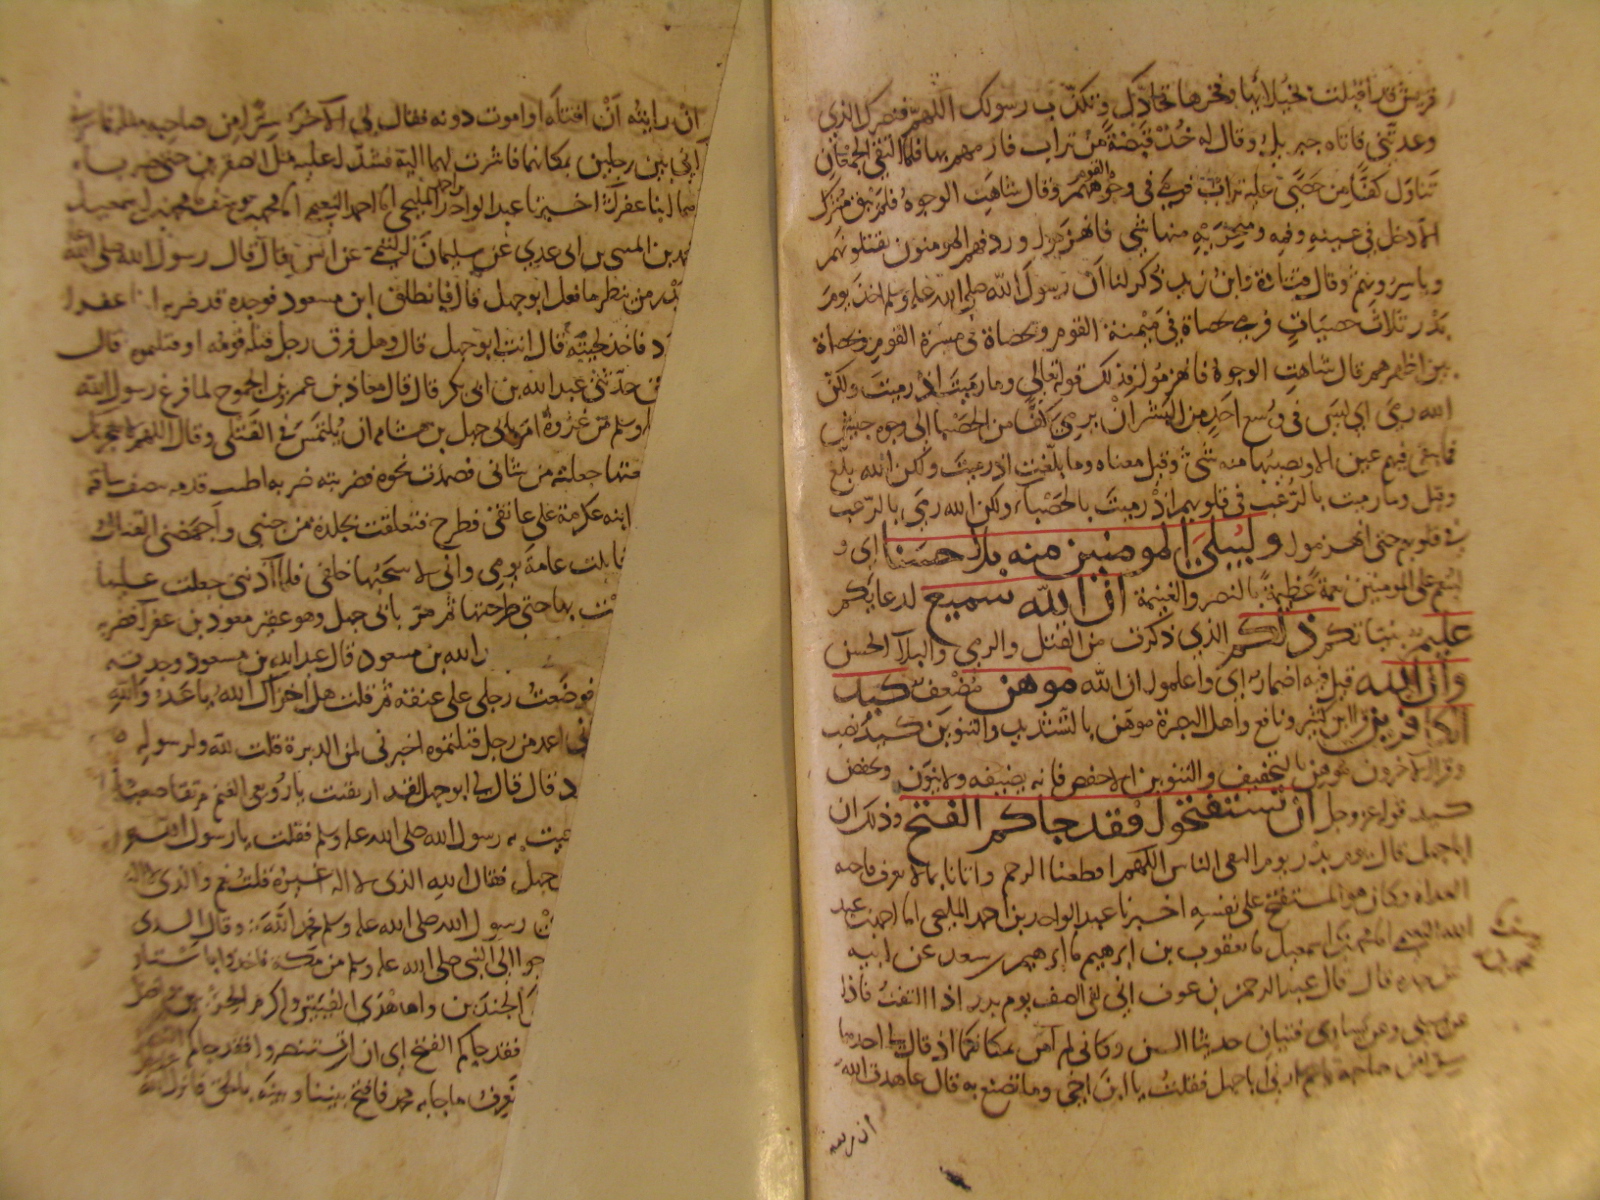 قريش قد اقبلت بخيلايها وفخرها تحادّك وتكذّب رسولك اللهم فنصرك الذي
وعدتني فاتاه جبريل وقال له خُذْ قبضةً من تراب فارمهم بها فلما التقي الجمعان
تناول كفًّا من حصًى عليه تراب فرمى في وجوه القوم وقال شاهت الوجوهُ فلم يبق مشرك
الا دخل في عينيه وفمه ومنخريه منها شي فانهزموا وردفهم المومنون يقتلونهم
وياسرونهم وقال قتادة وابن زيد ذُكر لنا انّ رسول الله صلى الله عليه وسلم اخذ يوم
بدر ثلاث حصيات فرمى بحصاة في ميمنة القوم وبحصاة في ميسرة القوم وبحصاة
بين اظهرهم قال شاهت الوجوهُ فانهزموا فذلك قوله تعالى وما رميتَ اذ رميتَ ولكن
الله رمى اي ليس في وُسع احدٍ من البشر انْ يرمي كفًّا من الحصبا الى وجوه جيش
فلا يبقى فيهم عين الا ويصيبها منه شئ وقيل معناه وما بلّغت اذ رميتَ ولكن الله بلّغ
وقيل وما رميت بالرّعب في قلوبهم اذْ رميتَ بالحَصْباء ولكن الله رمى بالرّعب
في قلوبهم حتى انهزموا وليُبْليَ المومنين منه بلا حسنًا اي و
لينعم على المومنين نعمة عظيمةً بالنصر والغنيمة ان الله سميع لدعايكم
عليم بنيّاتكم ذلكم الذي ذكرت من القتل والرمي والبلآ الحسن
وانّ الله قيل فيه اضمار اي واعلموا ان الله موهن مُضْعِف كيد
الكافرين قرا ابن كثير ونافع واهل البصرة موهّن بالتشديد والتنوين كيدَ نصب
وقرا الاخرون موهن بالتخفيف والتنوين الا حفص فانه يضيفه ولا ينون ويخفض
كيد قوله عز وجل ان تستفتحوا فقد جاكم الفتح وذلك ان
ابا جهل قال يوم بدر يوم التقى الناس اللهم اقطعنا الرحم واتانا بما لا يعرف فاحنه
الغداه وكان هو المستفتح على نفسه اخبرنا عبد الواحد بن احمد المليحي انا احمد بن عبد
الله النعيمي انا محمد بن يوسف نا محمد بن اسمعيل نا يعقوب بن ابرهيم نا ابرهيم بن سعد عن ابيه
عن جده قال قال عبد الرحمن بن عوف اني لفي الصف يوم بدر اذا التفتُ فاذا
عن يميني وعن يساري فتيان حديثا السن وكاني لم آمن بمكانهما اذ قال لي احدهما
سرا من صاحبه يا عم ارني ابا جهل فقلتُ يا ابن اخي وما تصنع به قال عاهدت الله
ان رايته
ان رايتُه اَنْ اقتله او اموت دونه فقال لي الاخر سرًّا من صاحبه مثله فما سرني
اني بين رجلين بمكانهما فاشرت لهما اليه فشدّا عليه مثل الصقرين حتى ضرباه
هما ابنا عفرآ اخبرنا عبد الواحد المليحي انا احمد النعيمي انا محمد بن يوسف نا محمد بن اسمعيل
بن المثنى نا ابن ابي عدي عن سليمان التيمي عن انس قال قال رسول الله صلى الله
بدر من ينظر ما فعل ابو جهل قال فانطلق ابن مسعود فوجده قد ضربه ابنا عفرا
د فاخذ بلحيته قال انت ابو جهل قال وهل فوق رجل قتله قومه او قتلتموه قال
حدّثني عبد الله بن ابي بكر قال قال معاذ بن عمرو بن الجموح لما فرغ رسول الله
وسلم من غزوة امر بابي جهل بن هشام ان يُلتمَسَ في القَتْلى وقال اللهم لا يعجزنك
سمعتها جعلته من شاني فصمدتُ نحوه فضربته ضربة اطنت قدمه بنصف ساقه
ابنه عكرمة على عاتقي فطرح فتعلقت بجلدة من جنبي واجهضني القتال
قاتلت عامة يومي واني لاسحبُها خلفي فلما آذتني جعلت عليها
بها حتى طرحتها ثم مر بابي جهل وهو عقير معوذ بن عفرآ فضربه
الله بن مسعود قال عبد الله بن مسعود وجدته
فوضعتُ رجلي على عنقه ثم قلت هل اخزاك اللهُ يا عدوّ والله
اعمد من رجل قتلتموه اخبرني لمن الدبرة قلت لله ولرسوله
د قال قال لي ابو جهل لقد ارتقيت يا رُويعي الغنم مرتقا صعبًا
جيت به رسول الله صلى الله عليه وسلم فقلت يا رسول الله
جهل فقال اللهِ الذي لا اله غيره قلت نعم والذي لا اله
رسول الله صلى الله عليه وسلم فحمد اللهَ وقال السدي
خرجوا الى النبي صلى الله عليه وسلم من مكة اخذوا باستار
الجندين واهدى الفئتين واكرم الحزبين
فقد جاكم الفتح اي ان تستنصروا فقد جاكم النصر
نعرف ما جا به محمد فافتح بيننا وبينه بالحق فانزل الله